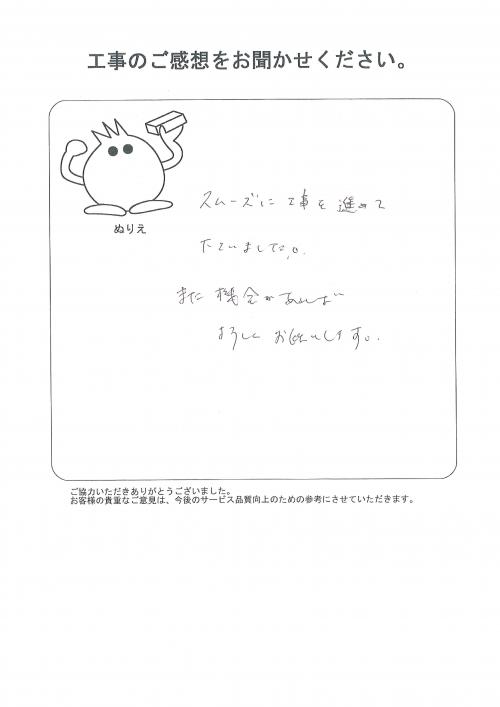 工事のご感想をお聞かせください。
ぬりえ
スムーズに工事を進めて
下さいました。
また機会があれば
よろしくお願いします。
ご協力いただきありがとうございました。
お客様の貴重なご意見は、今後のサービス品質向上のための参考にさせていただきます。